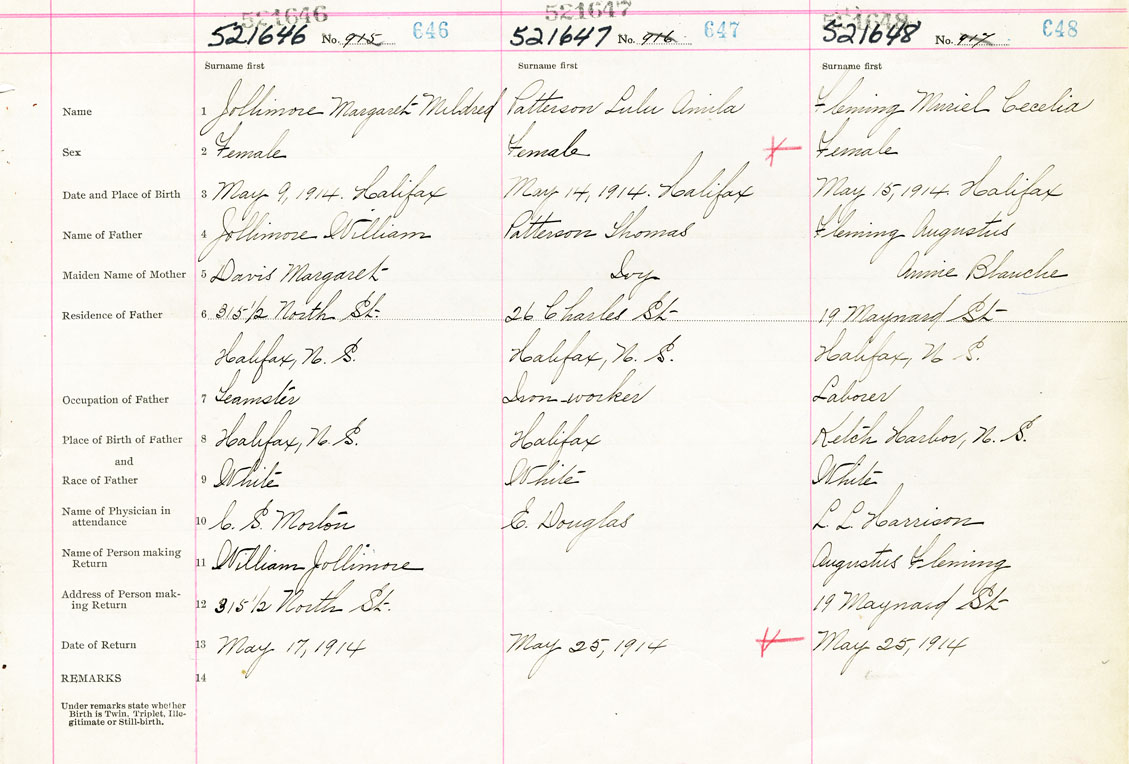 521646 521647 521648
521646 No. 915 646 521647 No. 916 647 521648 No. 917 648
Surname first Surname first Surname first
Name 1 Jollimore Margaret Mildred Patterson Lulu Amila Fleming Muriel Cecelia
Sex 2 Female Female Female
Date and Place of Birth 3 May 9, 1914. Halifax May 14, 1914. Halifax May 15, 1914 Halifax
Name of Father 4 Jollimore William Patterson Thomas Fleming Augustus
Maiden Name of Mother 5 Davis Margaret Ivy Annie Blanche
Residence of Father 6 315 1/2 North St. 26 Charles St 19 Maynard St
Halifax, N. S. Halifax, N. S. Halifax, N S.
Occupation of Father 7 Teamster Iron-worker Laborer
Place of Birth of Father 8 Halifax, N. S. Halifax Ketch Harbor, N. S.
and
Race of Father 9 White White White
Name of Physician in
attendance 10 C. S. Morton E. Douglas L. L. Harrison
Name of Person making
Return 11 William Jollimore Augustus Fleming
Address of Person mak-
ing Return 12 315 1/2 North St. 19 Maynard St
Date of Return 13 May 17, 1914 May 25, 1914 May 25, 1914
REMARKS 14
Under remarks state whether
Birth is Twin, Triplet, Ille-
gitimate or Still-birth.